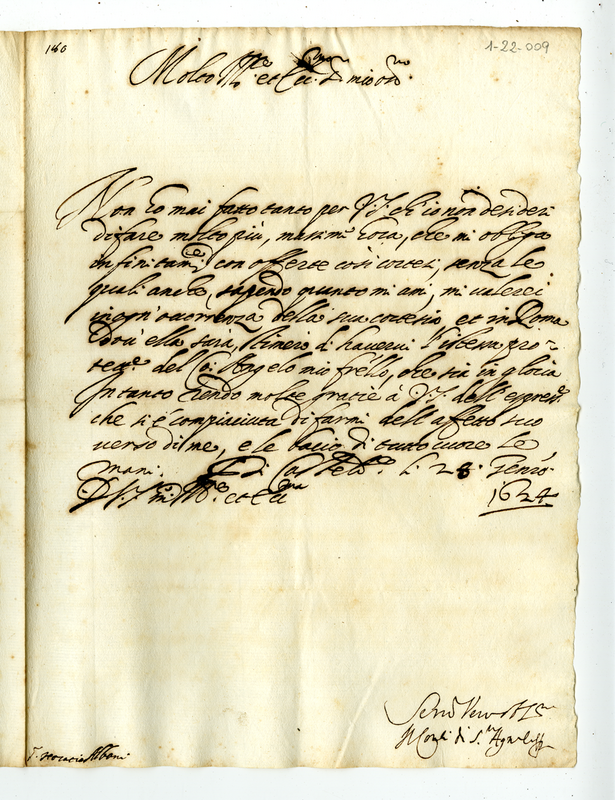 180
1-22-009
Molto Ill.re et Ecc. S. mio oss.mo
Non ho mai fatto tanto per V.S. ch'io non desideri
di fare molto più, massime hora, che mi obliga
infinitam.te con offerte così cortesi, senza le
quali anche, sapendo quanto mi ami, mi valerei
in ogni occorrenza della sua cortesia et in Roma
dov' ella sarà, stimerò di havervi l'istessa pro-
tez.ne del Co: Angelo mio fr'ello, che sia in gloria
In tanto rendo molte gratie à V.S. dell'espress.
che si è compiaciuta di farmi dell'affetto suo
verso di me, e le bacio di tutto cuore le
mani. Di li 28. Genro.
D V.S. m. Ill.re et Ecc.ma 1624
Ser.re
Il Conte di S.ta
S. Horatio Albani